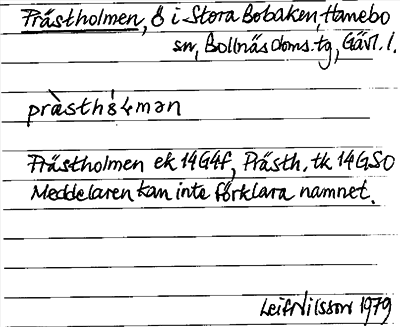 Prästholmen, ö i Stora Bobaken, Hanebo
sn, Bollnäs doms. tg, Gävl. l.
Prästholmen ek 14G4f, Prästh. tk 14GSO
Meddelaren kan inte förklara namnet.
Leif Nilsson 1979